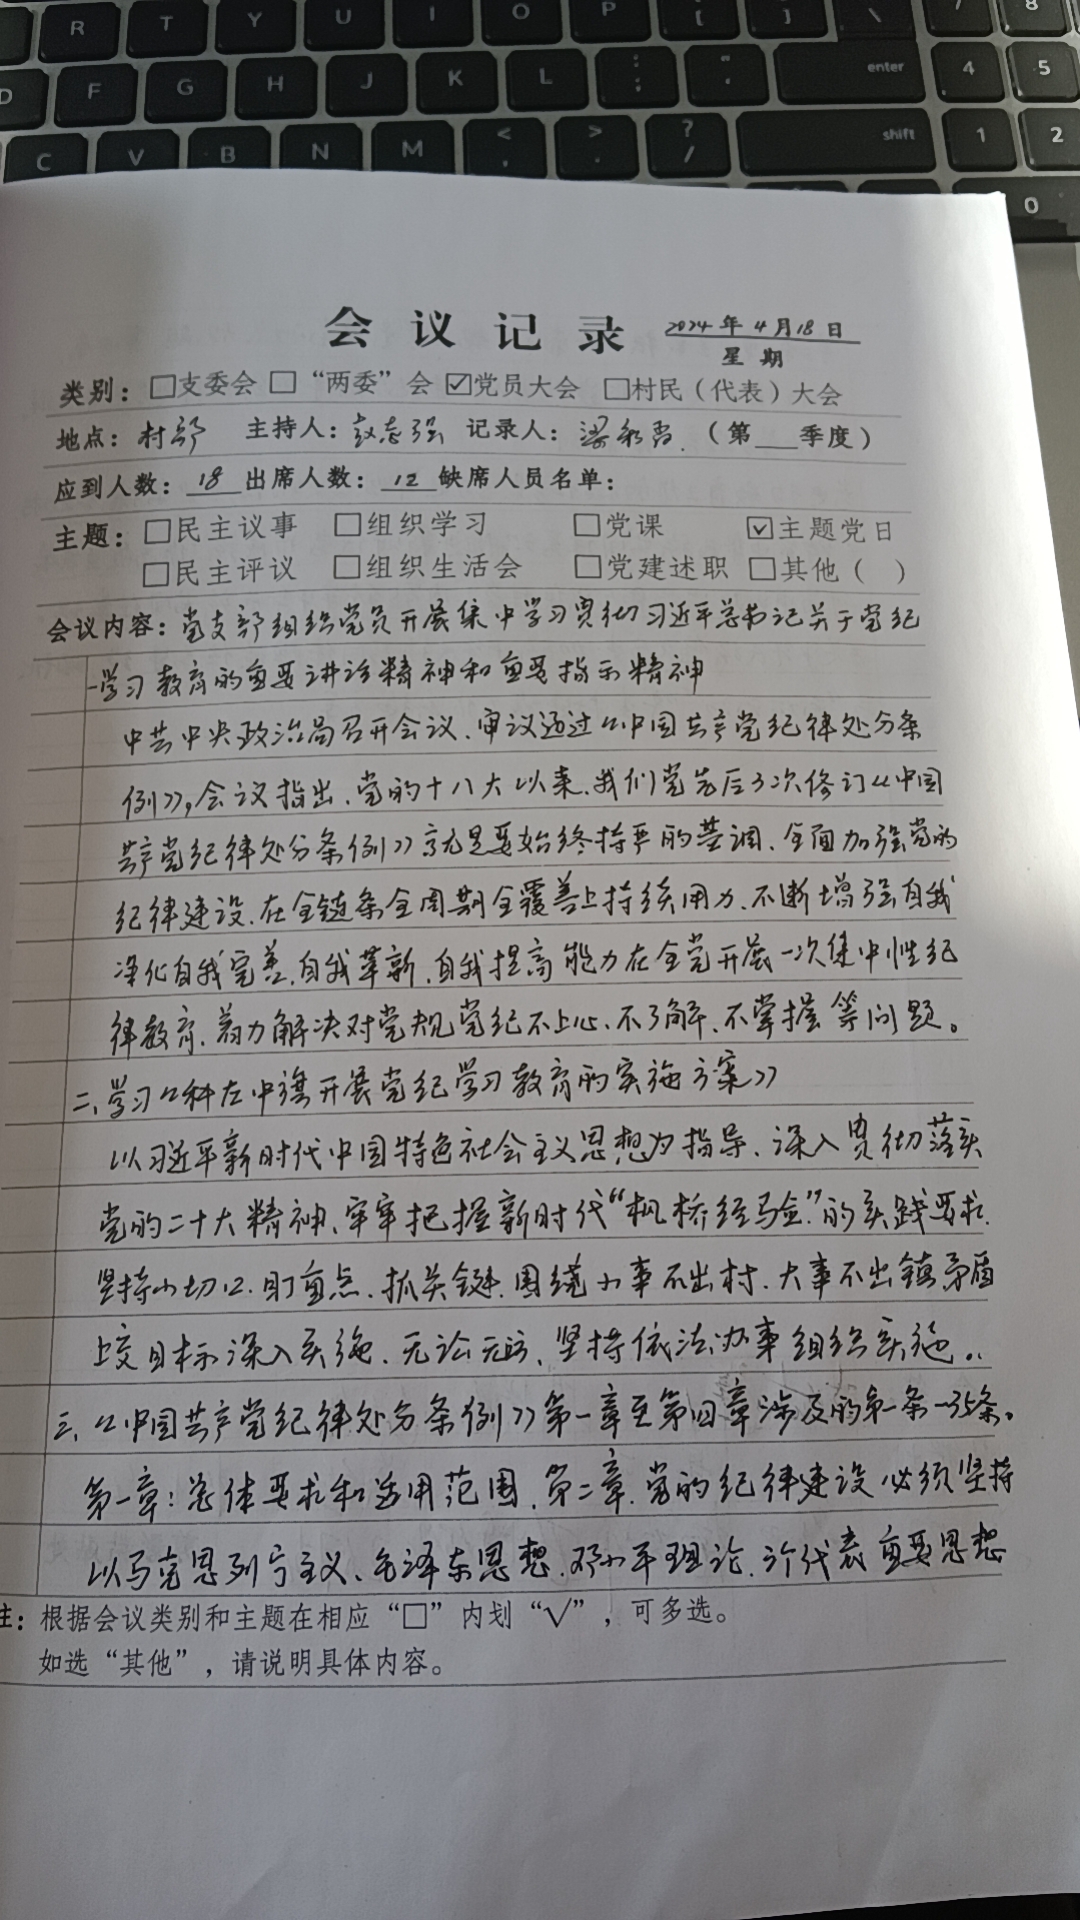 R T Y U I O P [ ] \ 7 8
D F G H J K L : ; " ' enter 4 5
C V B N M < , > . ? / shift 1 2
0
会议记录 2024年4月18日
星期
类别：□支委会 □“两委”会 ☑党员大会 □村民（代表）大会
地点：村部 主持人：赵志强 记录人：梁 （第___季度）
应到人数：18 出席人数：12 缺席人员名单：
主题：□民主议事 □组织学习 □党课 ☑主题党日
□民主评议 □组织生活会 □党建述职 □其他（ ）
会议内容：党支部组织党员开展集中学习贯彻习近平总书记关于党纪
一学习教育的重要讲话精神和重要指示精神
中共中央政治局召开会议、审议通过《中国共产党纪律处分条
例》，会议指出、党的十八大以来、我们党先后3次修订《中国
共产党纪律处分条例》就是要始终持严的基调、全面加强党的
纪律建设、在全链条全周期全覆盖上持续用力、不断增强自我
净化自我完善、自我革新、自我提高能力在全党开展一次集中性纪
律教育、着力解决对党规党纪不上心、不了解、不掌握等问题。
二、学习《科左中旗开展党纪学习教育的实施方案》
以习近平新时代中国特色社会主义思想为指导、深入贯彻落实
党的二十大精神、牢牢把握新时代“枫桥经验”的实践要求、
坚持小切口、盯重点、抓关键、围绕小事不出村、大事不出镇矛盾
上交目标深入实施、无论无、坚持依法办事组织实施。
三、《中国共产党纪律处分条例》第一章至第四章涉及的第一条—35条。
第一章：总体要求和适用范围、第二章、党的纪律建设必须坚持
以马克思列宁主义、毛泽东思想、邓小平理论、个代表重要思想
注：根据会议类别和主题在相应“□”内划“√”，可多选。
如选“其他”，请说明具体内容。